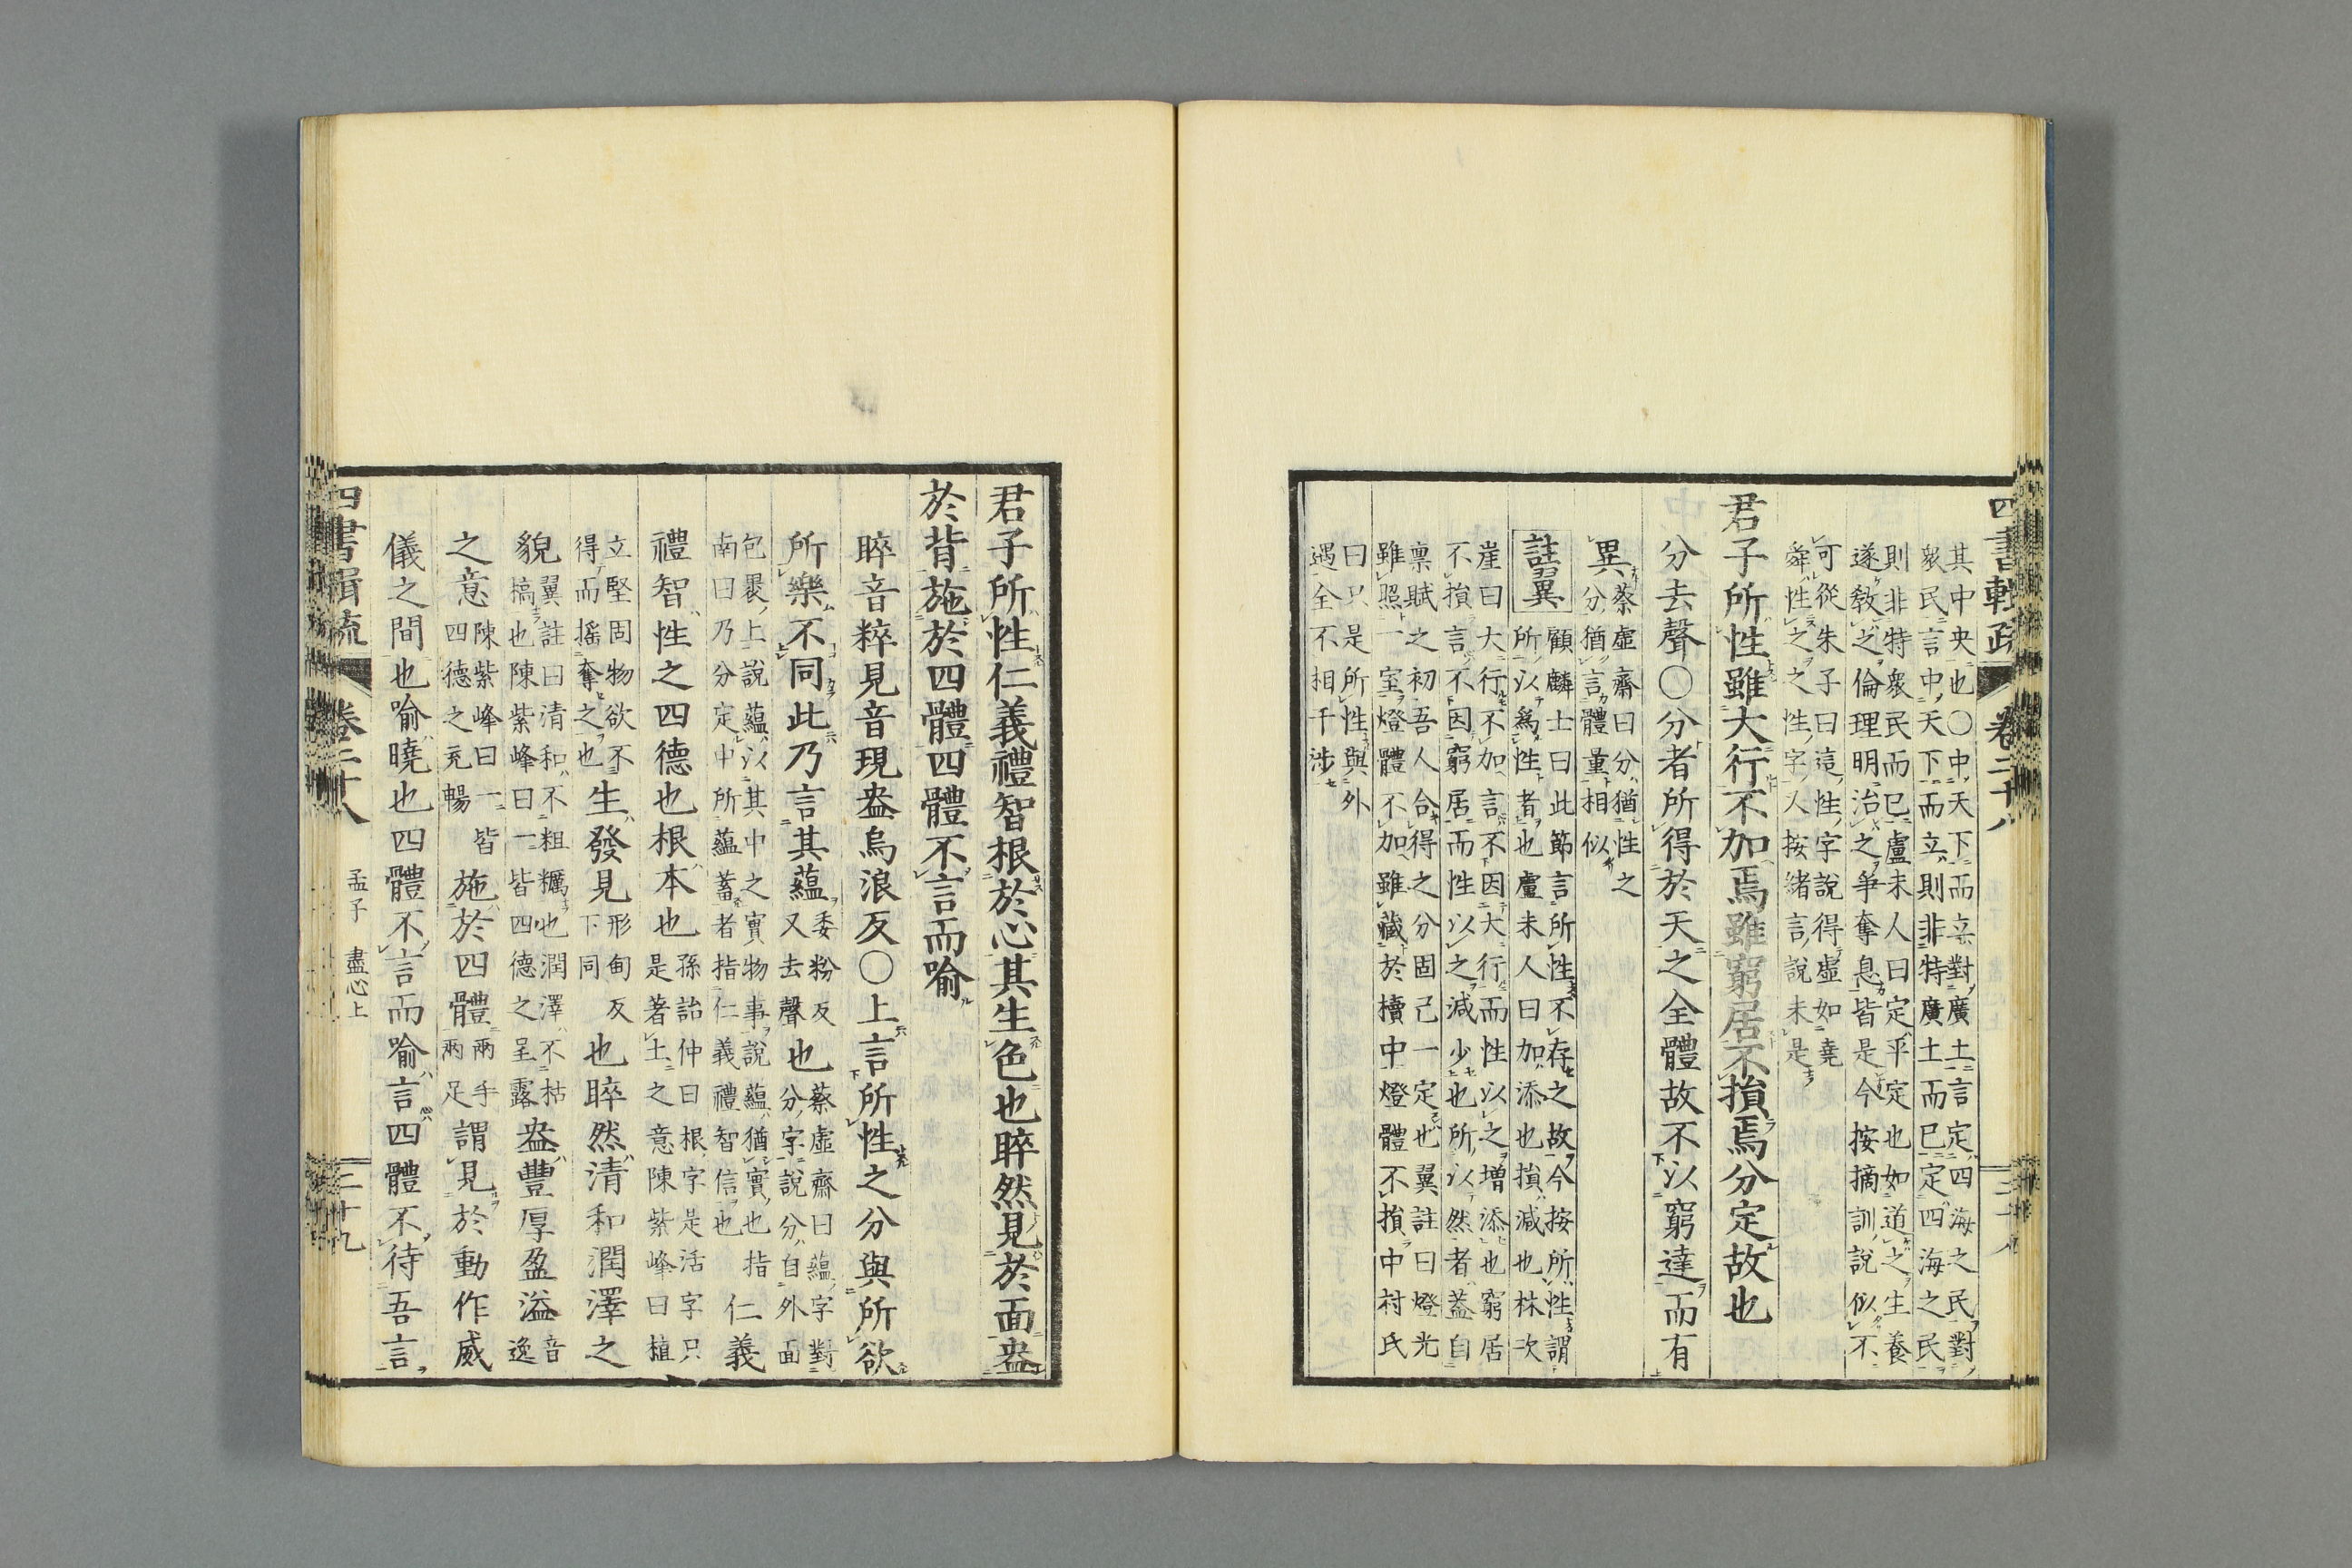 四書輯疏 卷二十八
其中央也○中天下而立對廣土言定四海之民對
衆民言中天下而立則非特廣土而已定四海之民
則非特衆民而已盧未人曰定平定也如道之生養
遂敎之倫理明治之爭奪息皆是今按摘訓說似不
可從朱子曰這性字說得虛如堯
舜性之之性字人按緒言說未是
君子所性雖大行不加焉雖窮居不損焉分定故也
分去聲○分者所得於天之全體故不以窮達而有
異蔡虛齋曰分猶性之
分猶言體重相似
註翼 顧麟士曰此節言所性不存之故今按所性謂
所以為性者也盧未人曰加添也損減也株次
崖曰大行不加言不因大行而性以之增添也窮居
不損言不因窮居而性以之減少也所以然者蓋自
禀賦之初吾人合得之分固已一定也翼註曰燈光
雖照一室燈體不加雖藏於櫝中燈體不損中村氏
曰只是所性與外
遇全不相干涉
君子所性仁義禮智根於心其生色也睟然見於面盎
於背施於四體四體不言而喻
睟音粹見音現盎烏浪反○上言所性之分與所欲
所樂不同此乃言其蘊委粉反又去聲也蔡虛齋曰蘊字對分字說分自外面
包褁上說蘊以其中之實物事說蘊猶實也指仁義
南曰乃分定中所蘊蓄者指仁義禮智信也
禮智性之四德也根本也孫詒仲曰根字是活字只是著土之意陳紫峰曰植
立堅固物欲不得而搖奪之也生發見形甸反下同也睟然清和潤澤之
貌翼註曰清和不粗糲也潤澤不枯槁也陳紫峰曰一皆四德之呈露盎豐厚盈溢音逸
之意陳紫峰曰一皆四德之充暢施於四體兩手兩足謂見於動作威
儀之間也喻曉也四體不言而喻言四體不待吾言
四書輯疏 卷二十八 孟子 盡心上 二十九